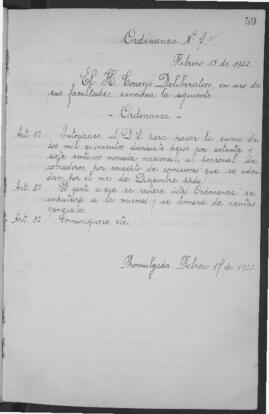 59
Ordenanza Nº
Febrero 13 de 1922.
El H. Concejo Deliberativo, en uso de
sus facultades, sanciona la siguiente
- Ordenanza -
Art. 1º: Autorízase al D. E. para pagar la suma de
dos mil quinientos diecisiete pesos con setenta y
siete centavos moneda nacional, al personal de
cobradores, por concepto de comisiones que se adeu-
dan por el mes de Diciembre ppdo.
Art. 2º: El gasto a que se refiere esta Ordenanza se
imputará a la misma y se tomará de rentas
generales.
Art. 3º: Comuníquese, etc.
Promulgada, Febrero 17 de 1922.